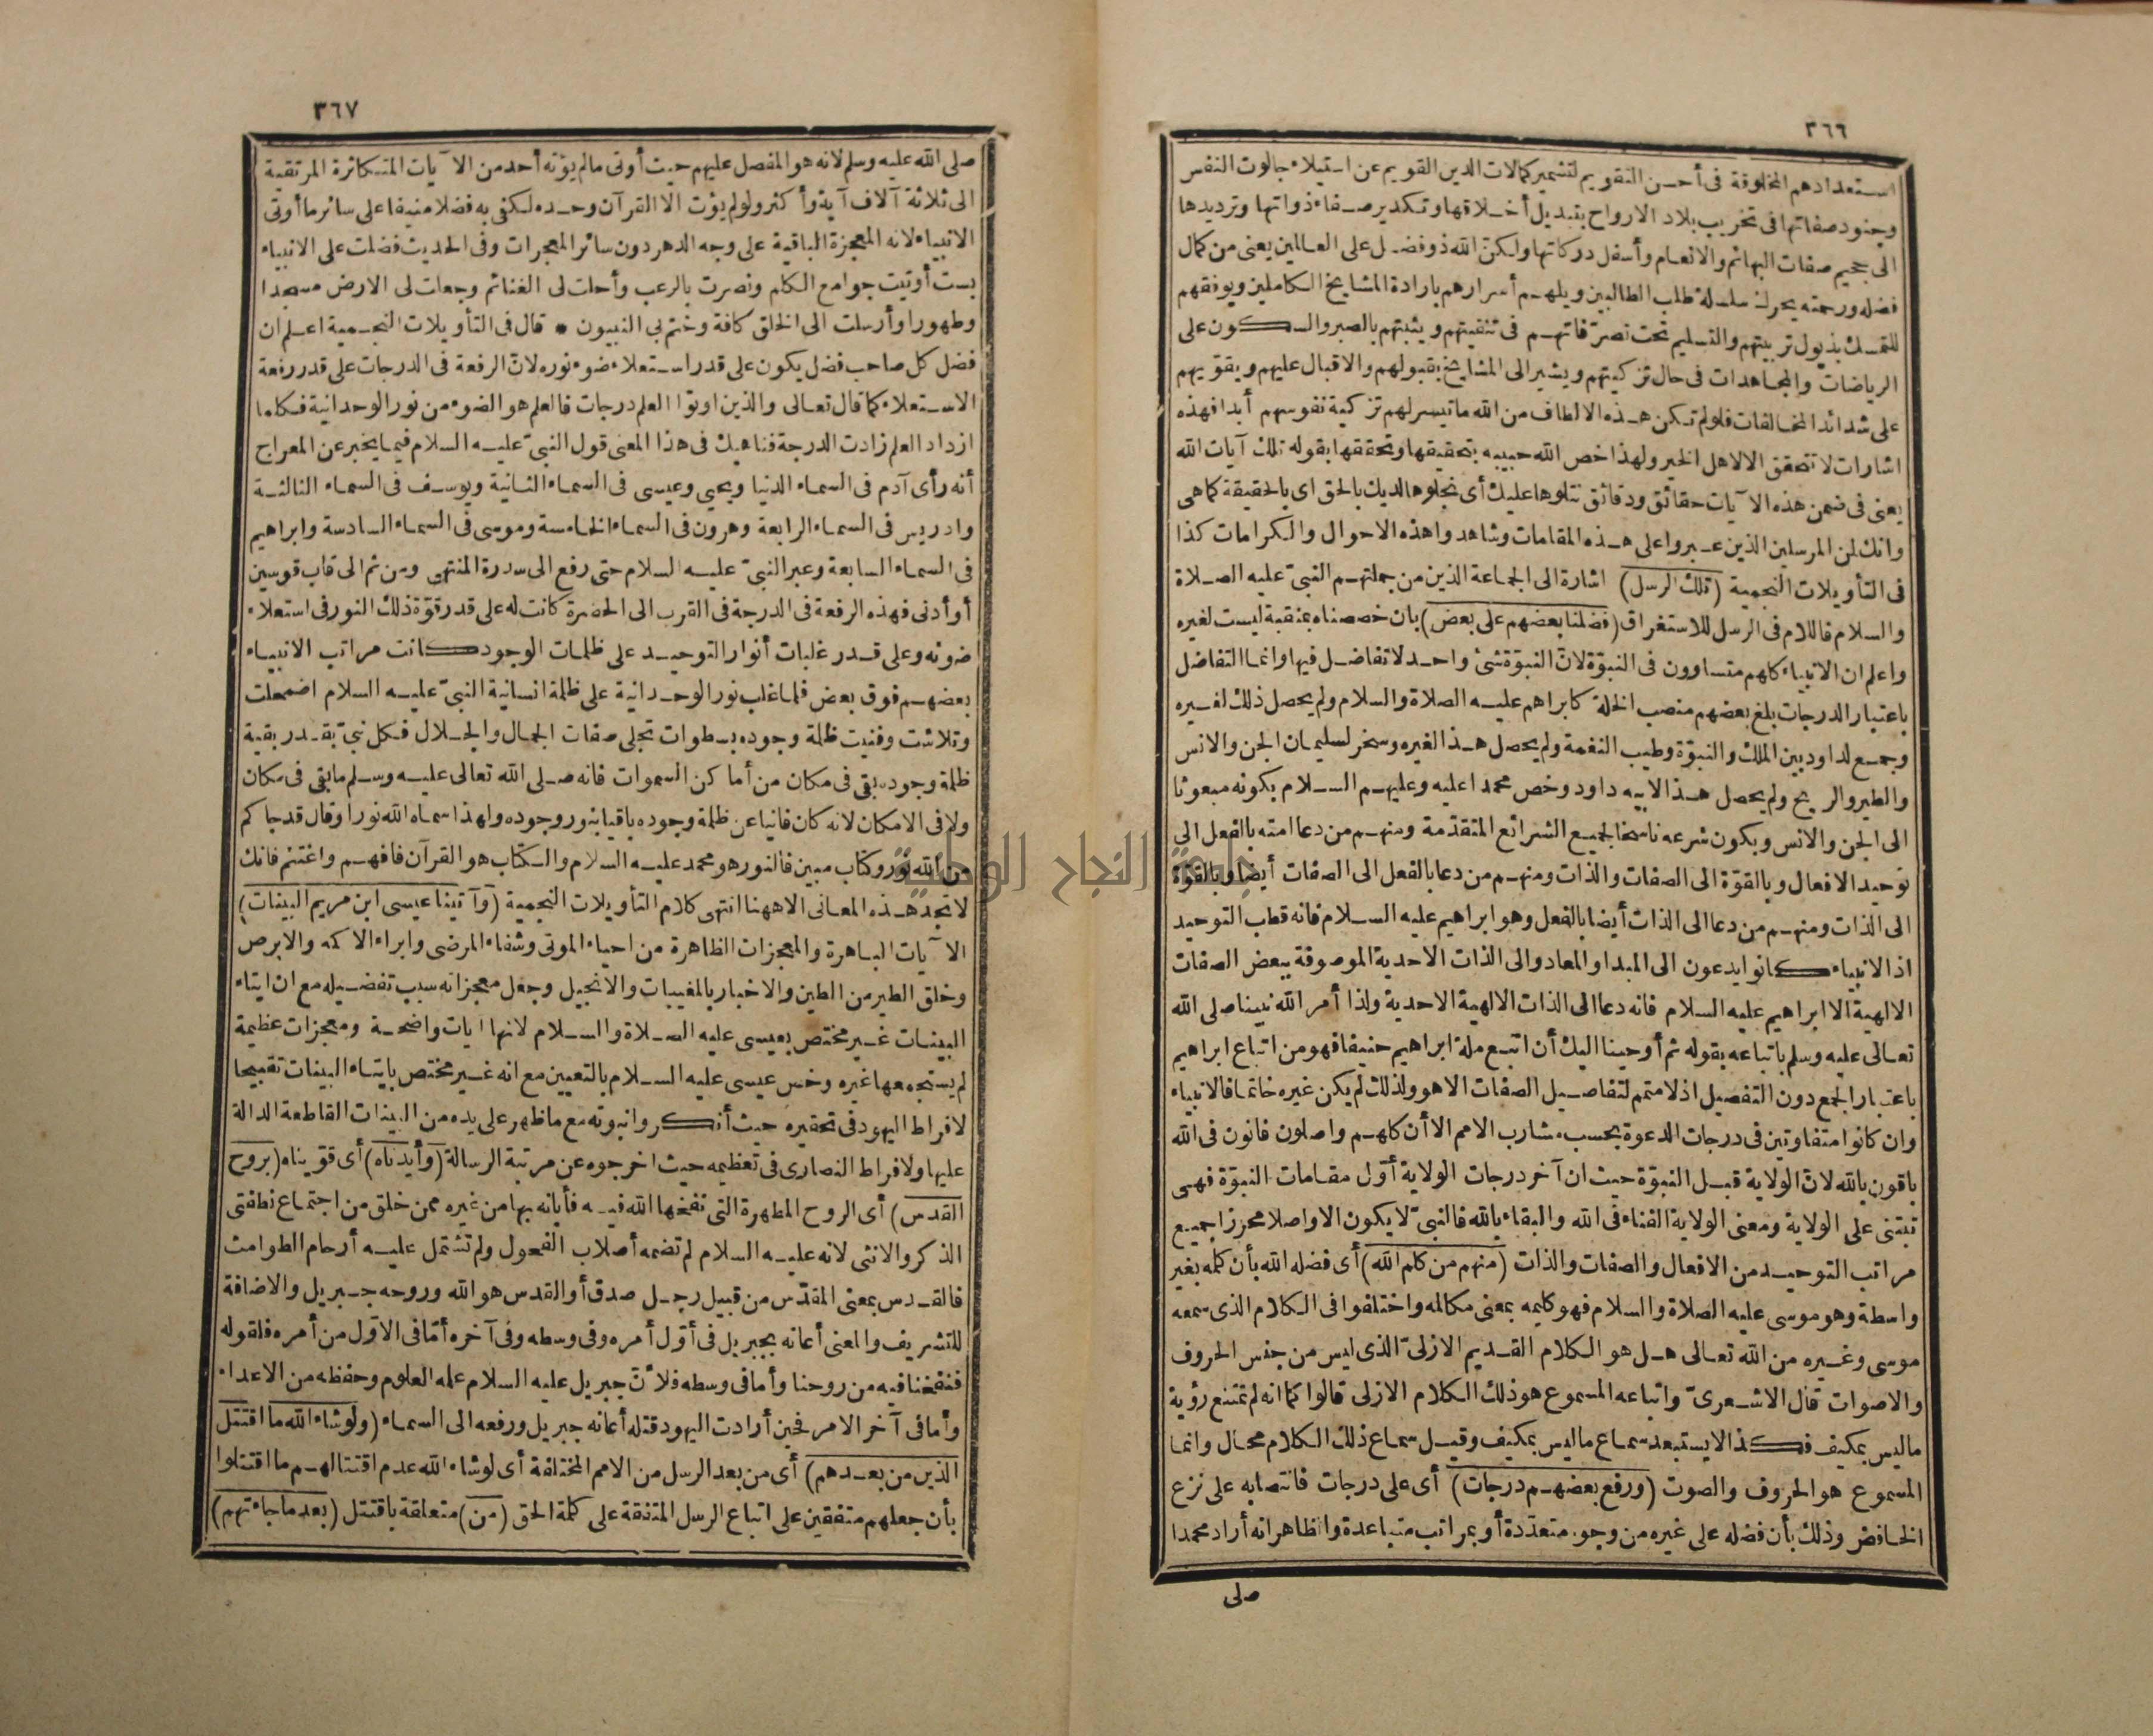 ٣٦٦
استعدادهم المخلوقة فى أحسن التقويم لتشمير كمالات الدين القويم عن استيلاء جالوت النفس
وجنود صفاتها فى تخريب بلاد الارواح بتبديل أخلاقها وتكدير صفاء ذواتها وترديدها
الى جحيم صفات البهائم والانعام وأسفل دركاتها ولكنّ الله ذو فضل على العالمين يعنى من كمال
فضله ورحمته يحرك سلسلة طلب الطالبين ويلهم أسرارهم بارادة المشايخ الكاملين ويوفقهم
للتمسك بذيول تربيتهم والتسليم تحت تصرّفاتهم فى تنقيتهم ويثبتهم بالصبر والسكون على
الرياضات والمجاهدات فى حال تزكيتهم ويشير الى المشايخ بقبولهم والاقبال عليهم ويقوّيهم
على شدائد المخالفات فلو لم تكن هذه الالطاف من الله ما تيسر لهم تزكية نفوسهم أبدا فهذه
اشارات لا تتحقق الا لاهل الخير ولهذا خص الله حبيبه بتحقيقها وتحققها بقوله تلك آيات الله
يعنى فى ضمن هذه الآيات حقائق ودقائق نتلوها عليك أى نجلوها لديك بالحق اى بالحقيقة كما هى
وانك لمن المرسلين الذين عبروا على هذه المقامات وشاهدوا هذه الاحوال والكرامات كذا
فى التأويلات النجمية (تلك الرسل) اشارة الى الجماعة الذين من جملتهم النبىّ عليه الصلاة
والسلام فاللام فى الرسل للاستغراق (فضلنا بعضهم على بعض) بان خصصناه بمنقبة ليست لغيره
واعلم ان الانبياء كلهم متساوون فى النبوّة لانّ النبوّة شئ واحد لا تفاضل فيها وانما التفاضل
باعتبار الدرجات بلغ بعضهم منصب الخلة كابراهيم عليه الصلاة والسلام ولم يحصل ذلك لغيره
وجمع لداود بين الملك والنبوّة وطيب النغمة ولم يحصل هذا لغيره وسخر لسليمان الجن والانس
والطير والريح ولم يحصل هذا لابيه داود وخص محمدا عليه وعليهم السلام بكونه مبعوثا
الى الجن والانس وبكون شرعه ناسخا لجميع الشرائع المتقدّمة ومنهم من دعا امته بالفعل الى
توحيد الافعال وبالقوّة الى الصفات والذات ومنهم من دعا بالفعل الى الصفات أيضا وبالقوّة
الى الذات ومنهم من دعا الى الذات أيضا بالفعل وهو ابراهيم عليه السلام فانه قطب التوحيد
اذ الانبياء كانوا يدعون الى المبدا والمعاد والى الذات الاحدية الموصوفة ببعض الصفات
الالهية الا ابراهيم عليه السلام فانه دعا الى الذات الالهية الاحدية ولذا أمر الله نبينا صلى الله
تعالى عليه وسلم باتباعه بقوله ثم أوحينا اليك أن اتبع ملة ابراهيم حنيفا فهو من اتباع ابراهيم
باعتبار الجمع دون التفصيل اذ لا متمم لتفاصيل الصفات الا هو ولذلك لم يكن غيره خاتما فالانبياء
وان كانوا متفاوتين فى درجات الدعوة بحسب مشارب الامم الا أن كلهم واصلون فانون فى الله
باقون بالله لانّ الولاية قبل النبوّة حيث ان آخر درجات الولاية أوّل مقامات النبوّة فهى
تبتنى على الولاية ومعنى الولاية الفناء فى الله والبقاء بالله فالنبىّ لا يكون الا واصلا محرزا جميع
مراتب التوحيد من الافعال والصفات والذات (منهم من كلم الله) أى فضله الله بأن كلمه بغير
واسطة وهو موسى عليه الصلاة والسلام فهو كليمه بمعنى مكالمه واختلفوا فى الكلام الذى سمعه
موسى وغيره من الله تعالى هل هو الكلام القديم الازلىّ الذى ليس من جنس الحروف
والاصوات قال الاشعرىّ واتباعه المسموع هو ذلك الكلام الازلى قالوا كما انه لم تمتنع رؤية
ما ليس بمكيف فكذا لا يستبعد سماع ما ليس بمكيف وقيل سماع ذلك الكلام محال وانما
المسموع هو الحروف والصوت (ورفع بعضهم درجات) أى على درجات فانتصابه على نزع
الخافض وذلك بأن فضله على غيره من وجوه متعدّدة أو بمراتب متباعدة والظاهر انه أراد محمدا
صلى
٣٦٧
صلى الله عليه وسلم لانه هو المفضل عليهم حيث أوتى ما لم يؤته أحد من الآيات المتكاثرة المرتقية
الى ثلاثة آلاف آية وأكثر ولو لم يؤت الا القرآن وحده لكفى به فضلا منيفا على سائر ما أوتى
الانبياء لانه المعجزة الباقية على وجه الدهر دون سائر المعجزات وفى الحديث فضلت على الانبياء
بست أوتيت جوامع الكلم ونصرت بالرعب وأحلت لى الغنائم وجعلت لى الارض مسجدا
وطهورا وأرسلت الى الخلق كافة وختم بى النبيون * قال فى التأويلات النجمية اعلم ان
فضل كل صاحب فضل يكون على قدر استعلاء ضوء نوره لانّ الرفعة فى الدرجات على قدر رفعة
الاستعلاء كما قال تعالى والذين اوتوا العلم درجات فالعلم هو الضوء من نور الوحدانية فكلما
ازداد العلم زادت الدرجة فناهيك فى هذا المعنى قول النبىّ عليه السلام فيما يخبر عن المعراج
أنه رأى آدم فى السماء الدنيا ويحيى وعيسى فى السماء الثانية ويوسف فى السماء الثالثة
وادريس فى السماء الرابعة وهرون فى السماء الخامسة وموسى فى السماء السادسة وابراهيم
فى السماء السابعة وعبر النبىّ عليه السلام حتى رفع الى سدرة المنتهى ومن ثم الى قاب قوسين
أو أدنى فهذه الرفعة فى الدرجة فى القرب الى الحضرة كانت له على قدر قوّة ذلك النور فى استعلاء
ضوئه وعلى قدر غلبات أنوار التوحيد على ظلمات الوجود كانت مراتب الانبياء
بعضهم فوق بعض فلما غلب نور الوحدانية على ظلمة انسانية النبىّ عليه السلام اضمحلت
وتلاشت وفنيت ظلمة وجوده بسطوات تجلى صفات الجمال والجلال فكل نبىّ بقدر بقية
ظلمة وجوده بقى فى مكان من أماكن السموات فانه صلى الله تعالى عليه وسلم ما بقى فى مكان
ولا فى الامكان لانه كان فانيا عن ظلمة وجوده باقيا بنور وجوده ولهذا سماه الله نورا وقال قد جاكم
من الله نور وكتاب مبين فالنور هو محمد عليه السلام والكتاب هو القرآن فافهم واغتنم فانك
لا تجد هذه المعانى الا ههنا انتهى كلام التأويلات النجمية (وآتينا عيسى ابن مريم البينات)
الآيات الباهرة والمعجزات الظاهرة من احياء الموتى وشفاء المرضى وابراء الاكمه والابرص
وخلق الطير من الطين والاخبار بالمغيبات والانجيل وجعل معجزاته سبب تفضيله مع ان ايتاء
البينات غير مختص بعيسى عليه الصلاة والسلام لانها آيات واضحة ومعجزات عظيمة
لم يستجمعها غيره وخص عيسى عليه السلام بالتعيين مع انه غير مختص بايتاء البينات تقبيحا
لافراط اليهود فى تحقيره حيث أنكروا نبوته مع ما ظهر على يده من البينات القاطعة الدالة
عليها ولافراط النصارى فى تعظيمه حيث اخرجوه عن مرتبة الرسالة (وأيدناه) أى قوّيناه (بروح
القدس) أى الروح المطهرة التى نفخها الله فيه فأبانه بها من غيره ممن خلق من اجتماع نطفتى
الذكر والانثى لانه عليه السلام لم تضمه أصلاب الفحول ولم تشتمل عليه أرحام الطوامث
فالقدس بمعنى المقدّس من قبيل رجل صدق أو القدس هو الله وروحه جبريل والاضافة
للتشريف والمعنى أعانه بجبريل فى أوّل أمره وفى وسطه وفى آخره أمّا فى الاوّل من أمره فلقوله
فنفخنا فيه من روحنا وأما فى وسطه فلانّ جبريل عليه السلام علمه العلوم وحفظه من الاعداء
وأما فى آخر الامر فحين أرادت اليهود قتله أعانه جبريل ورفعه الى السماء (ولو شاء الله ما اقتتل
الذين من بعدهم) أى من بعد الرسل من الامم المختلفة أى لو شاء الله عدم اقتتالهم ما اقتتلوا
بأن جعلهم متفقين على اتباع الرسل المتفقة على كلمة الحق (من) متعلقة باقتتل (بعد ما جاءتهم)